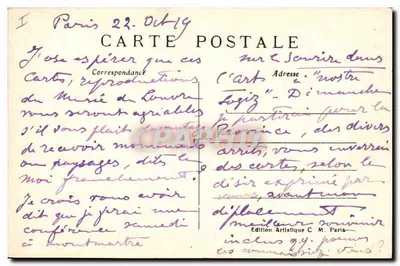 I
Paris 22. Oct 19
CARTE POSTALE
Correspondance
Adresse
J'ose espérer que ces
Cartes, reproductions
du Musée du Louvre
vous seront agréables
s'il vous plaît
de recevoir monuments
ou paysages, dites le
moi franchement.
Je crois vous avoir
dit que je ferai une
conférence samedi
à Montmartre
sur le Sourire dans
l'art à "nostre
Logiz". Dimanche
je partirai pour la
Province, des divers
arrêts, vous enverrai
des cartes, selon le
désir exprimé par
vous, avant mon
déplacement
meilleur souvenir
Edition Artistique C. M. Paris
inclus